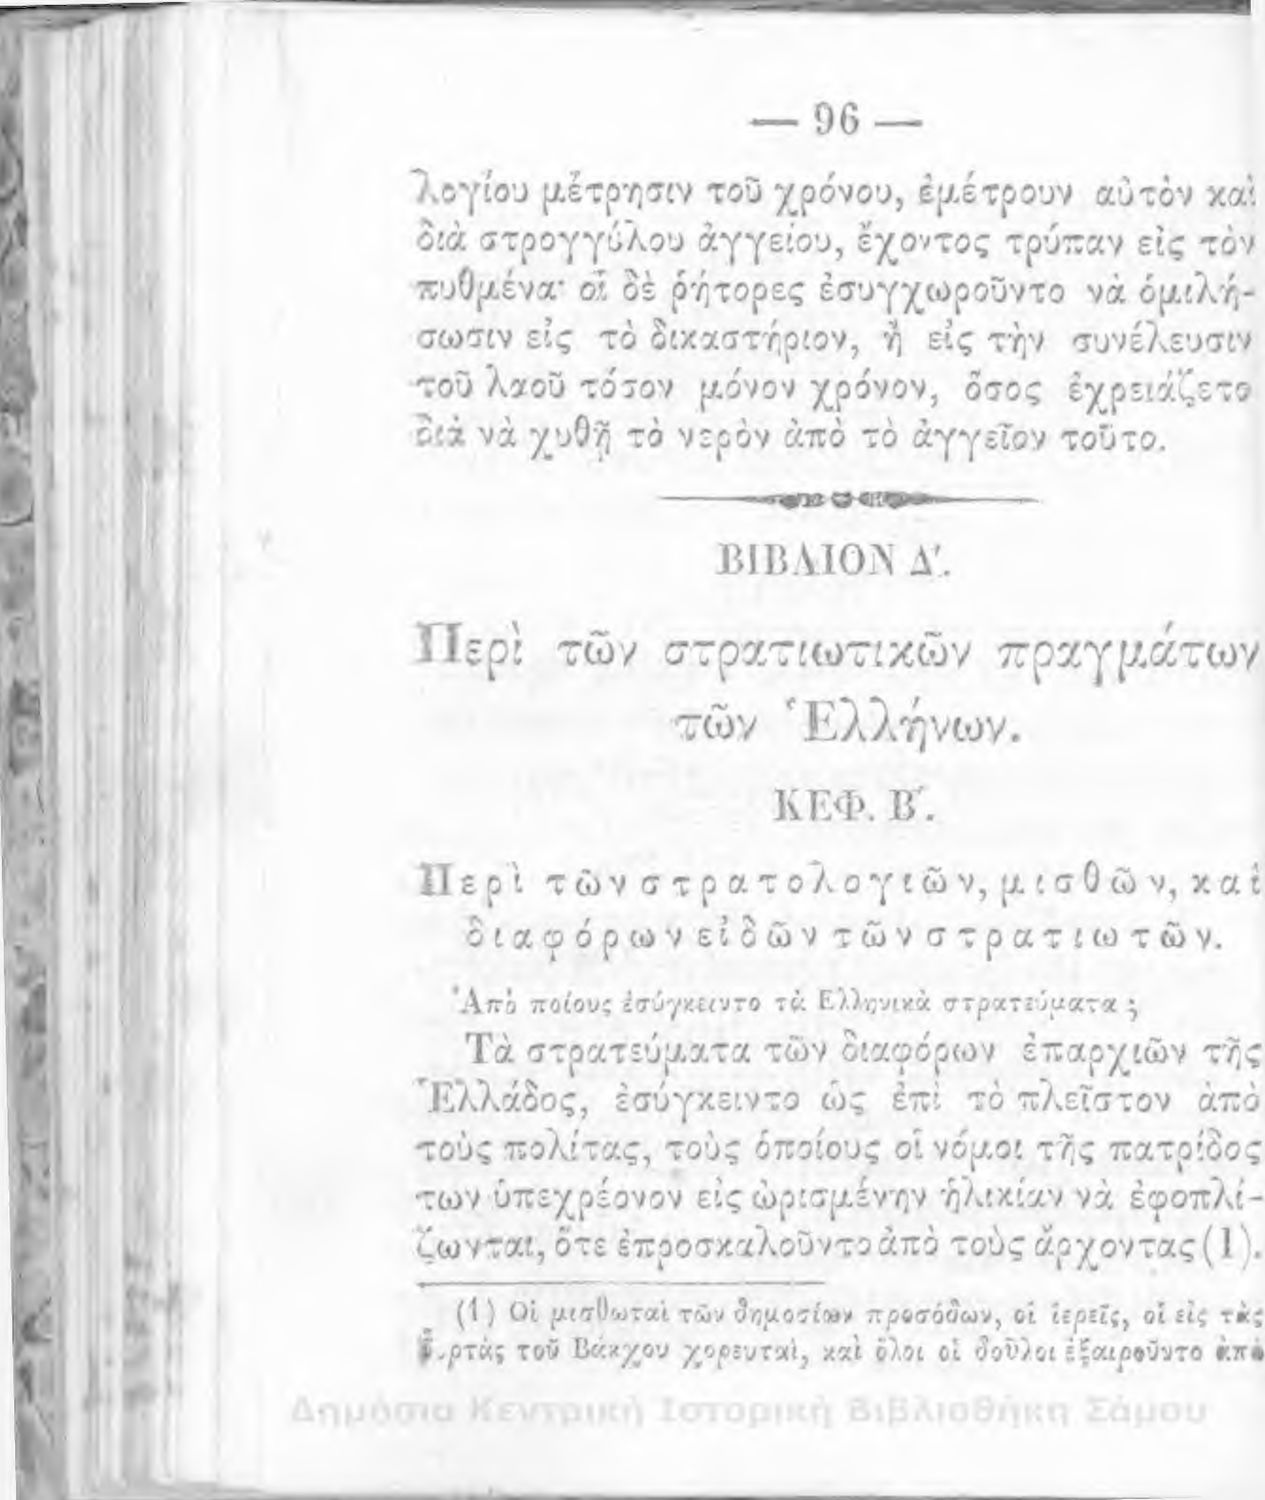 — 96 —
λογίου μέτρησιν τοῦ χρόνου, ἐμέτρουν αὐτὸν καὶ
διὰ στρογγύλου ἀγγείου, ἔχοντος τρύπαν εἰς τὸν
πυθμένα· οἱ δὲ ῥήτορες ἐσυγχωροῦντο νὰ ὁμιλή-
σωσιν εἰς τὸ δικαστήριον, ἢ εἰς τὴν συνέλευσιν
τοῦ λαοῦ τόσον μόνον χρόνον, ὅσος ἐχρειάζετο
διὰ νὰ χυθῇ τὸ νερὸν ἀπὸ τὸ ἀγγεῖον τοῦτο.
ΒΙΒΛΙΟΝ Δ΄.
Περὶ τῶν στρατιωτικῶν πραγμάτων
τῶν Ἑλλήνων.
ΚΕΦ. Β΄.
Περὶ τῶν στρατολογιῶν, μισθῶν, καὶ
διαφόρων εἰδῶν τῶν στρατιωτῶν.
Ἀπὸ ποίους ἐσύγκειντο τὰ Ἑλληνικὰ στρατεύματα ;
Τὰ στρατεύματα τῶν διαφόρων ἐπαρχιῶν τῆς
Ἑλλάδος, ἐσύγκειντο ὡς ἐπὶ τὸ πλεῖστον ἀπὸ
τοὺς πολίτας, τοὺς ὁποίους οἱ νόμοι τῆς πατρίδος
των ὑπεχρέονον εἰς ὡρισμένην ἡλικίαν νὰ ἐφοπλί-
ζωνται, ὅτε ἐπροσκαλοῦντο ἀπὸ τοὺς ἄρχοντας (1).
(1) Οἱ μισθωταὶ τῶν δημοσίων προσόδων, οἱ ἱερεῖς, οἱ εἰς τὰς
ἑορτὰς τοῦ Βάκχου χορευταὶ, καὶ ὅλοι οἱ δοῦλοι ἐξαιροῦντο ἀπὸ
Δημόσια Κεντρική Ιστορική Βιβλιοθήκη Σάμου